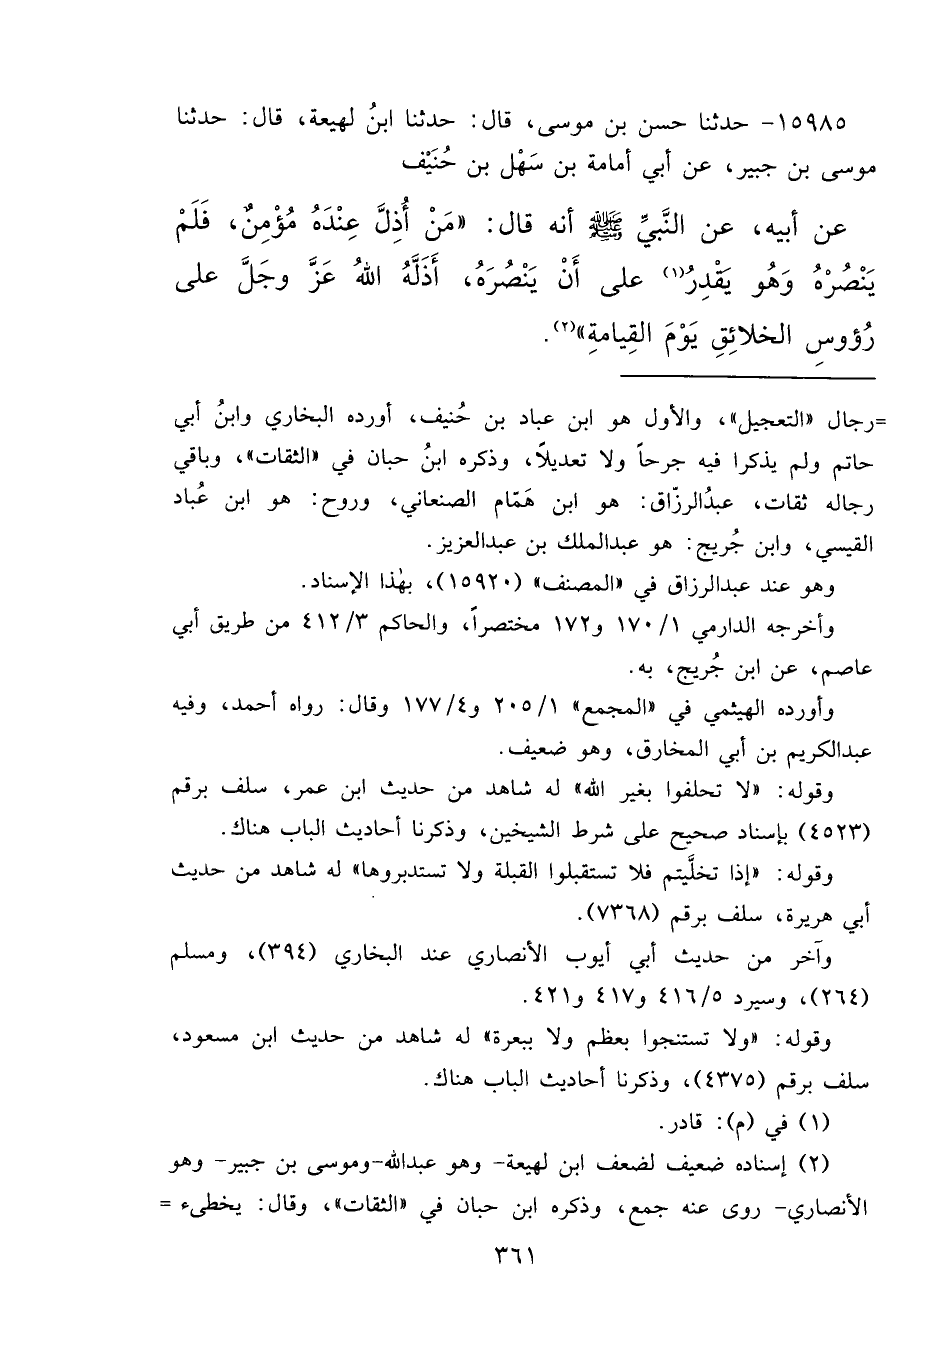 ١٥٩٨٥- حدثنا حسن بن موسى، قال: حدثنا ابنُ لهيعة، قال: حدثنا
موسى بن جبير، عن أبي أمامة بن سَهْل بن حُنَيْف
عن أبيه، عن النَّبيِّ ﷺ أنه قال: «مَنْ أُذِلَّ عِنْدَهُ مُؤْمِنٌ، فَلَمْ
يَنْصُرْهُ وَهُو يَقْدِرُ(١) على أَنْ يَنْصُرَهُ، أَذَلَّهُ اللهُ عَزَّ وجَلَّ على
رُؤوسِ الخلائِقِ يَوْمَ القِيامةِ»(٢).
=رجال «التعجيل»، والأول هو ابن عباد بن حُنيف، أورده البخاري وابنُ أبي
حاتم ولم يذكرا فيه جرحاً ولا تعديلاً، وذكره ابنُ حبان في «الثقات»، وباقي
رجاله ثقات، عبدُالرزّاق: هو ابن هَمّام الصنعاني، وروح: هو ابن عُباد
القيسي، وابن جُريج: هو عبدالملك بن عبدالعزيز.
وهو عند عبدالرزاق في «المصنف» (١٥٩٢٠)، بهٰذا الإسناد.
وأخرجه الدارمي ١٧٠/١ و١٧٢ مختصراً، والحاكم ٤١٢/٣ من طريق أبي
عاصم، عن ابن جُريج، به.
وأورده الهيثمي في «المجمع» ٢٠٥/١ و١٧٧/٤ وقال: رواه أحمد، وفيه
عبدالكريم بن أبي المخارق، وهو ضعيف.
وقوله: «لا تحلفوا بغير الله» له شاهد من حديث ابن عمر، سلف برقم
(٤٥٢٣) بإسناد صحيح على شرط الشيخين، وذكرنا أحاديث الباب هناك.
وقوله: «إذا تخلَّيتم فلا تستقبلوا القبلة ولا تستدبروها» له شاهد من حديث
أبي هريرة، سلف برقم (٧٣٦٨).
وآخر من حديث أبي أيوب الأنصاري عند البخاري (٣٩٤)، ومسلم
(٢٦٤)، وسيرد ٤١٦/٥ و٤١٧ و٤٢١.
وقوله: «ولا تستنجوا بعظم ولا ببعرة» له شاهد من حديث ابن مسعود،
سلف برقم (٤٣٧٥)، وذكرنا أحاديث الباب هناك.
(١) في (م): قادر.
(٢) إسناده ضعيف لضعف ابن لهيعة- وهو عبدالله-وموسى بن جبير- وهو
الأنصاري- روى عنه جمع، وذكره ابن حبان في «الثقات»، وقال: يخطىء =
٣٦١